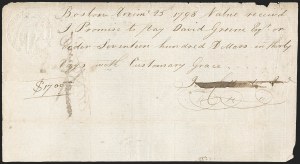 Boston Novemr. 25 1793 Value received
I Promise to pay David Greene Esqr. or
Order Seventeen hundred Dollars in thirty
days with Customary Grace
$1700